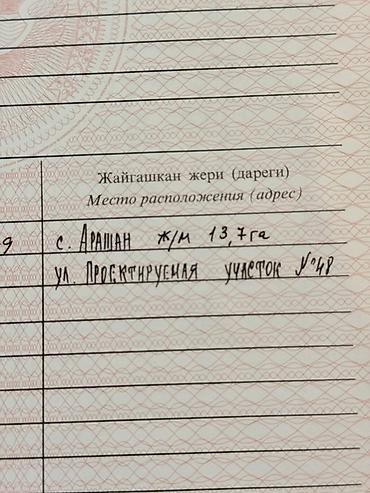 Жайгашкан жери (дареги)
Место расположения (адрес)
9 с. Арашан ж/м 13,7га
ул. Проектируемая участок №48